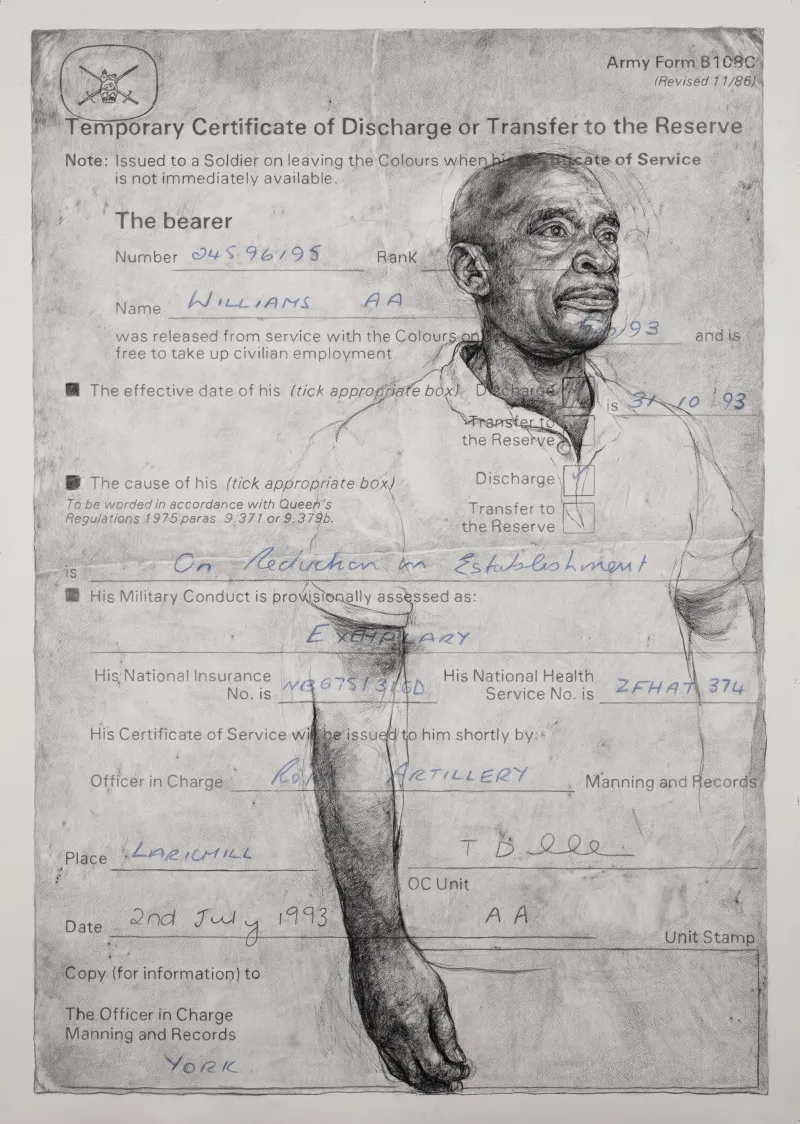 Army Form B108C
(Revised 11/86)
Temporary Certificate of Discharge or Transfer to the Reserve
Note: Issued to a Soldier on leaving the Colours when his Certificate of Service
is not immediately available.
The bearer
Number 24596195 Rank
Name WILLIAMS AA
was released from service with the Colours on /93 and is
free to take up civilian employment
The effective date of his (tick appropriate box) Discharge is 31 10 '93
Transfer to
the Reserve
The cause of his (tick appropriate box) Discharge
To be worded in accordance with Queen's
Regulations 1975 paras 9.371 or 9.379b.
Transfer to
the Reserve
is On Reduction in Establishment
His Military Conduct is provisionally assessed as:
EXEMPLARY
His National Insurance
No. is
His National Health
Service No. is ZFHAT 374
His Certificate of Service will be issued to him shortly by:
Officer in Charge ARTILLERY Manning and Records
Place LARKHILL
OC Unit
Date 2nd July 1993 AA
Unit Stamp
Copy (for information) to
The Officer in Charge
Manning and Records
YORK